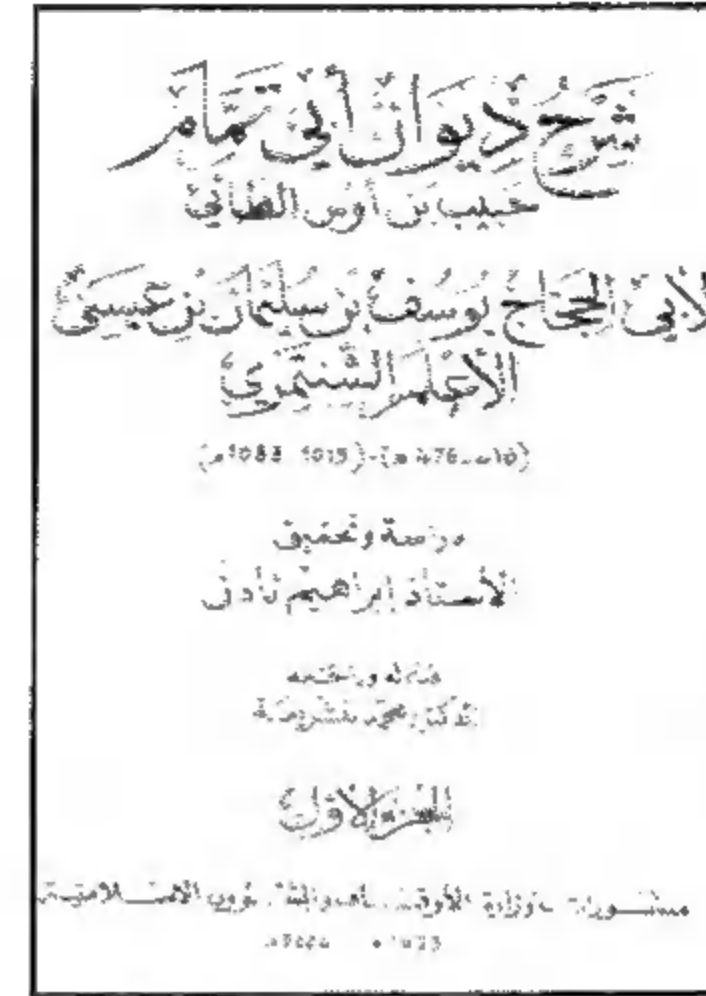 شَرْحُ دِيوَان أَبِي تَمَّام
حَبِيب بن أَوْس الطَّائِيّ
لأبي الحجاج يُوسُف بْن سُلَيْمَان بْن عِيسَى
الأعلم الشَّنتمري
(410هـ-476هـ)-(1015-1083م)
دراسة وتحقيق
الأستاذ إبراهيم نادن
قدم له وراجعه
الدكتور محمد بنشريفة
الجزء الأول
منشورات وزارة الأوقاف والشؤون الإسلامية